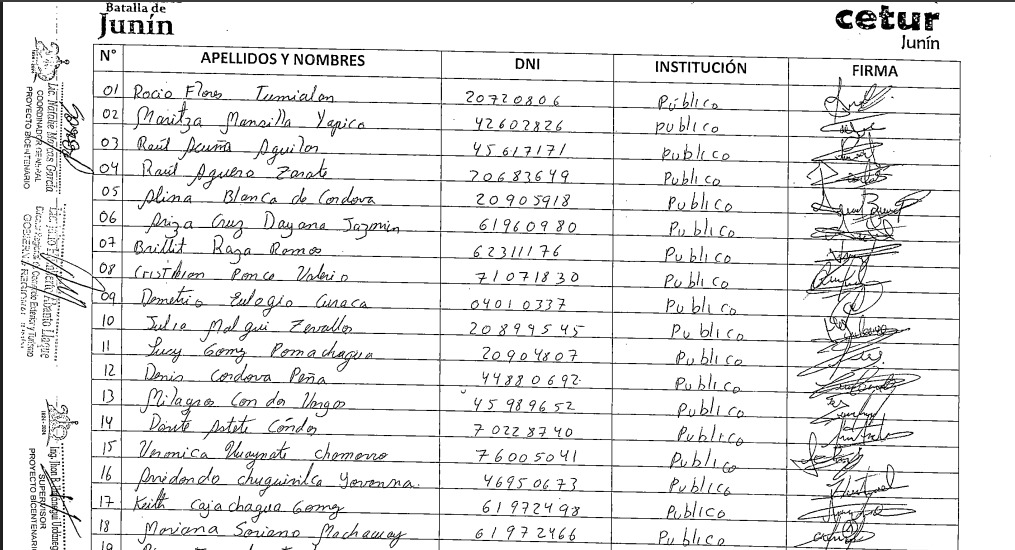 Batalla de
Junín
cetur
Junín
N° APELLIDOS Y NOMBRES DNI INSTITUCIÓN FIRMA
01 Rocio Flores Tumialan 20720806 Público
02 Maritza Mansilla Yapico 42602826 publico
03 Raúl Acuña Aguilar 45617171 Publico
04 Raúl Aguero Zarate 20683649 Publico
05 Alina Blanca de Cordova 20905918 Publico
06 Ariza Cruz Dayana Jazmin 61960980 Publico
07 Brillit Raza Ramos 62311176 Publico
08 Cristhian Ponce Valerio 71071830 Publico
09 Demetrio Eulogio Curaca 04010337 Publico
10 Julia Malqui Zevallos 20899545 Publico
11 Lucy Gomz Pomachagua 20904807 Publico
12 Denis Cordova Peña 44880692 Publico
13 Milagros Condor Vargas 45989652 Publico
14 Dante Astete Cóndor 70228740 Publico
15 Veronica Huaynate Chamorro 76005041 Publico
16 Arredondo Chuquirilca Yovanna 46950673 Publico
17 Keith Cajachagua Gomez 61972498 Publico
18 Mariana Soriano Machaway 61972466 Publico
19
COORDINADOR GENERAL
PROYECTO BICENTENARIO
SUPERVISOR
PROYECTO BICENTENARIO